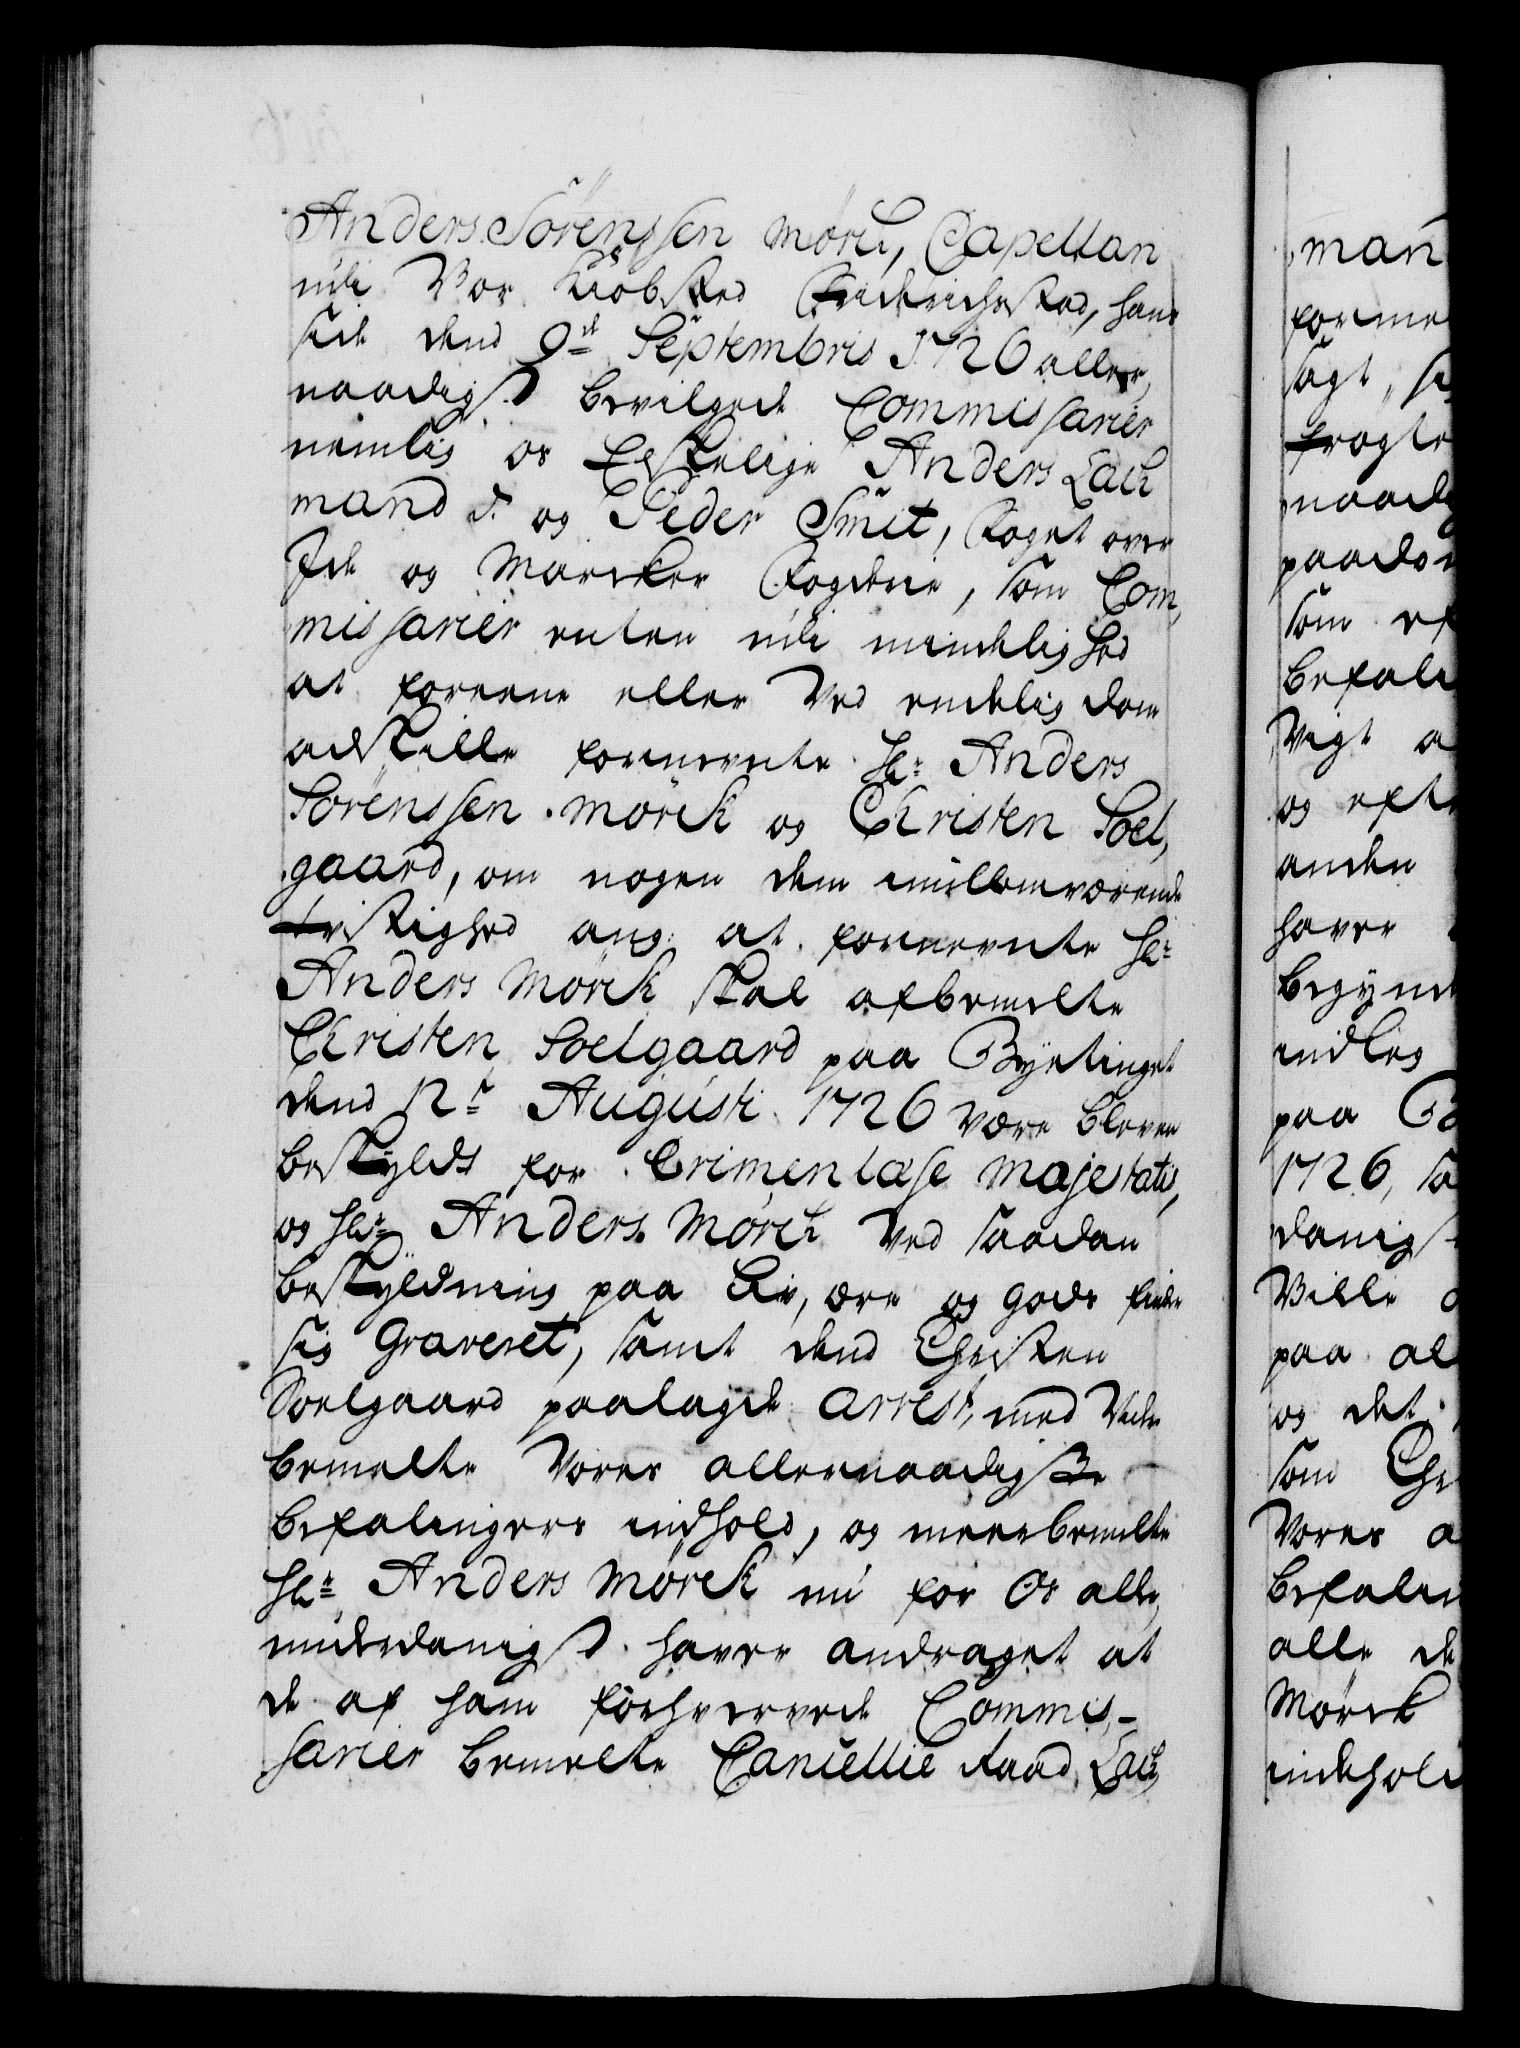 Anders Sörenssen Mörck, Capellan
udi Vor Kiöbsted Friderichstad, hans
side dend 9de Septembris 1726 aller,
naadigst bevilgede Commissarier
nemlig os Elskelige Anders Lach
mand S. og Peder Smit, Foget over
Ide og Marcker Fogderie, som Com,
missarier enten udi mindelighed
at foreene eller Ved endelig dom
adskille fornevnte Hr. Anders
Sörenssen Mörck og Christen Soel,
gaard, om nogen dem imellemværende
tvistighed ang: at fornevnte Hr.
Anders Mörck skal afbemelte
Christen Soelgaard paa Byetinget
dend 12te Augusti 1726 være bleven
beskyldt for Crimen læsæ Majestatis,
og Hr. Anders Mörck ved saadan
beskyldning paa Liv, ære og gods finde
sig Graveret, samt dend Christen
Soelgaard paalagde arrest, med Vide
bemelte Vores allernaadigste
befalingers indhold, og meerbemelte
Hr. Anders Mörck nu for Os aller,
underdanigst haver andraget at
de af ham forhvervede Commis,-
sarier bemelte Cancellie Raad Lach,
man
forme
sagt, 
naad
som ef
befali
Vigt a
og eft
anden
haver
begynd
endlig
paa
1726, sa
danigst
Ville
paa al
og det
som Chr
Vores a
befalin
alle de
Mörck
indehold